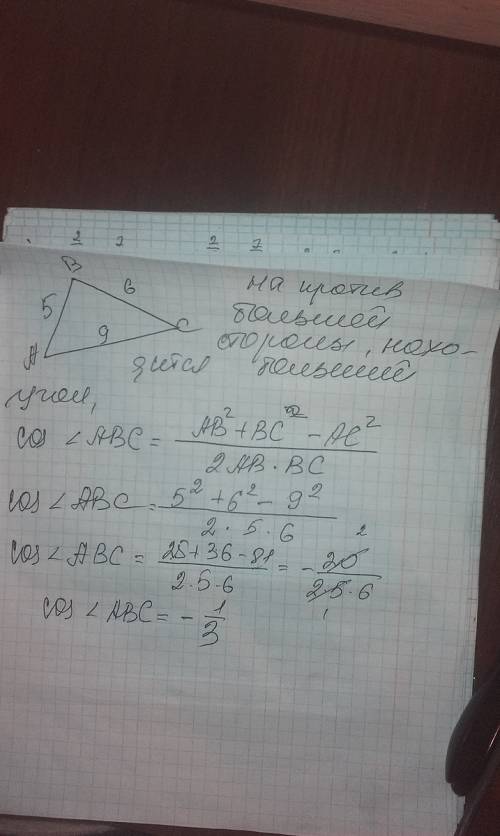 2 7 2 7
B
5 6
9 C
A
на против
большей
стороны, нахо-
дится больший
угол,
cos ∠ABC = (AB² + BC² - AC²) / (2AB · BC)
cos ∠ABC = (5² + 6² - 9²) / (2 · 5 · 6)
cos ∠ABC = (25 + 36 - 81) / (2 · 5 · 6) = - 20 / (2 5 · 6) 2 1
cos ∠ABC = - 1/3